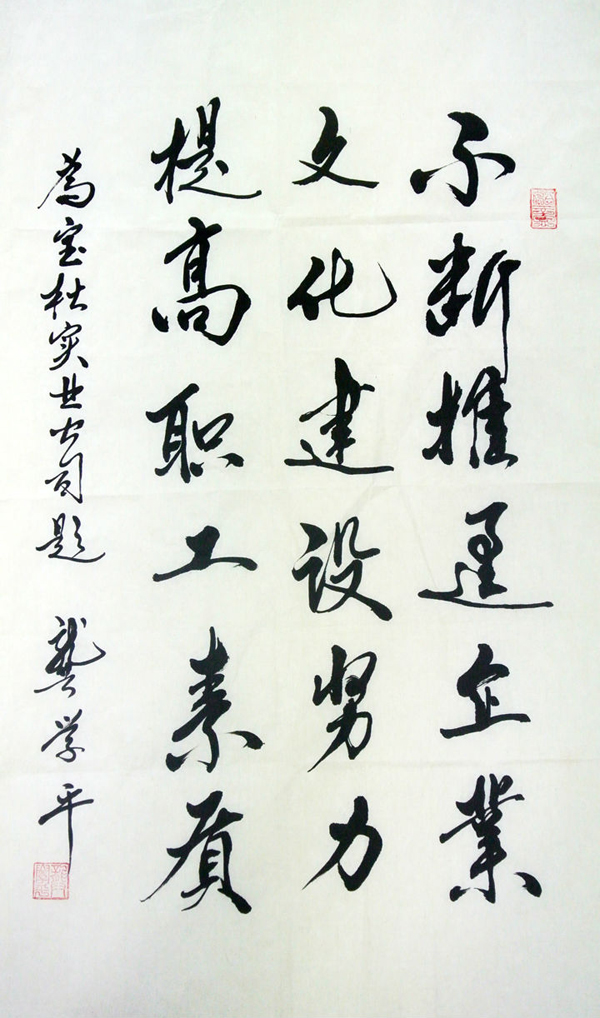 不断推进企業
文化建设努力
提高职工素质
为宝秋实业公司题 龚学平